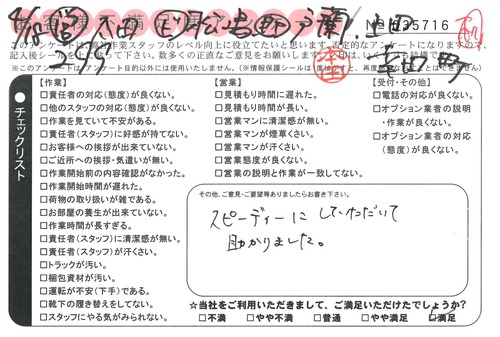 No 035716
このアンケートは、弊社作業スタッフのレベル向上に役立てたいと思います。否定的なアンケートになりますので、
記入後シールを上に貼って下さい。数多くの正直なご意見をお願い
※このアンケートはアンケート目的以外には使用いたしません。
チェックリスト
【作業】
□責任者の対応(態度)が良くない。
□他のスタッフの対応(態度)が良くない。
□作業を見ていて不安がある。
□責任者(スタッフ)に好感が持てない。
□お客様への挨拶が出来ていない。
□ご近所への挨拶・気遣いが無い。
□作業開始前の内容確認がなかった。
□作業開始時間が遅れた。
□荷物の取り扱いが雑である。
□お部屋の養生が出来ていない。
□作業時間が長すぎる。
□責任者(スタッフ)に清潔感が無い。
□責任者(スタッフ)が汗くさい。
□トラックが汚い。
□梱包資材が汚い。
□運転が不安(下手)である。
□靴下の履き替えをしてない。
□スタッフにやる気がみられない。
【営業】
□見積もり時間に遅れた。
□見積もり時間が長い。
□営業マンに清潔感が無い。
□営業マンが煙草くさい。
□営業マンが汗くさい。
□営業態度が良くない。
□営業の説明と作業が一致してない。
【受付・その他】
□電話の対応が良くない。
□オプション業者の説明
・作業が良くない。
□オプション業者の対応
(態度)が良くない。
その他、ご意見・ご要望等ありましたらお書き下さい。
スピーディーにしていただいて
助かりました。
☆当社をご利用いただきまして、ご満足いただけたでしょうか?
□不満 □やや不満 □普通 □やや満足 □満足